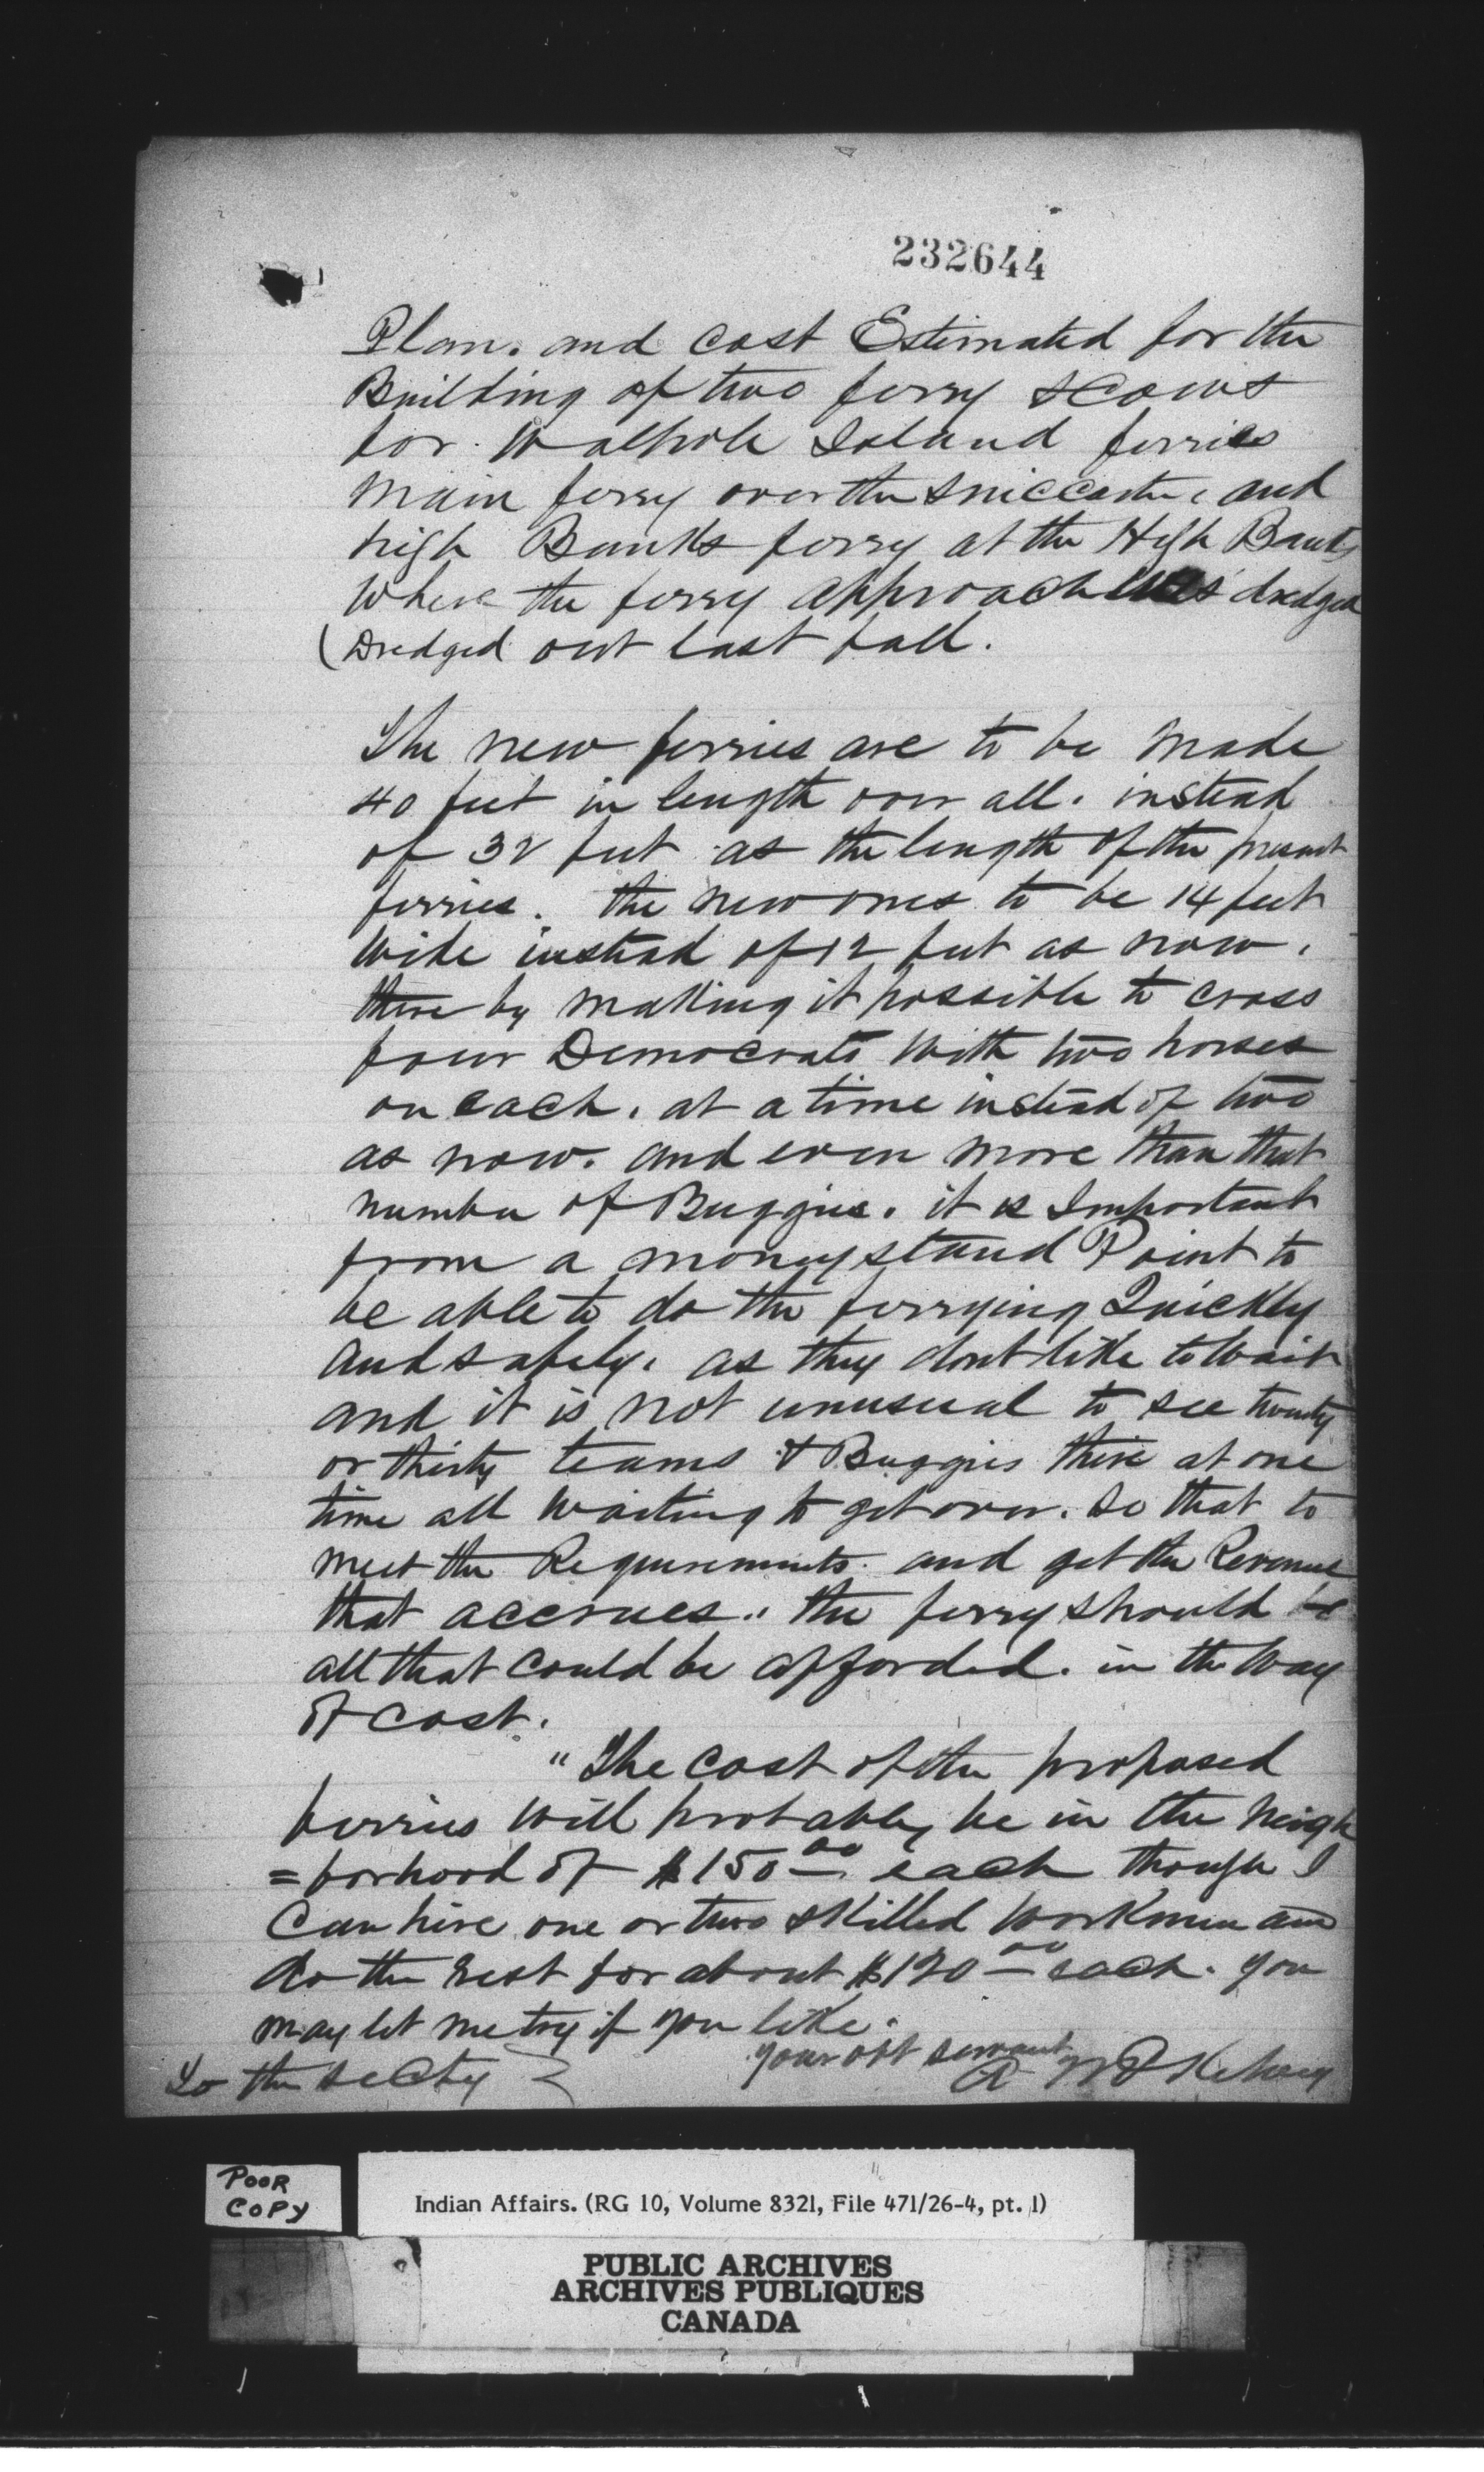 232644
Plan. and cost Estimated for the
Building of two ferry scows
for Walpole Island ferries
Main ferry over the Sniccartie, and
high Banks ferry at the High Banks
Where the ferry approach was dredged
(Dredged out last fall.
The new ferries are to be made
40 feet in length over all. instead
of 32 feet as the length of the present
ferries. the new ones to be 14 feet
wide instead of 12 feet as now,
there by making it possible to cross
four Democrats with two horses
on each, at a time instead of two
as now. and even more than that
number of Buggies. it is Important
from a money stand Point to
be able to do the ferrying Quickly
and safely. as they dont like to wait
and it is not unusual to see twenty
or thirty teams & Buggies there at one
time all waiting to get over. So that to
meet the Requirements. and get the Revenue
that accrues.. the ferry should be
all that could be afforded. in the way
of cost.
"The cost of the proposed
ferries will probably be in the neigh
=borhood of $150.00 each though I
Can hire one or two skilled workmen and
do the rest for about $120.00 each. you
may let me try if you like.
your obt servant
To the Secty
A McKelvey
POOR
COPY
Indian Affairs. (RG 10, Volume 8321, File 471/26-4, pt. 1)
PUBLIC ARCHIVES
ARCHIVES PUBLIQUES
CANADA